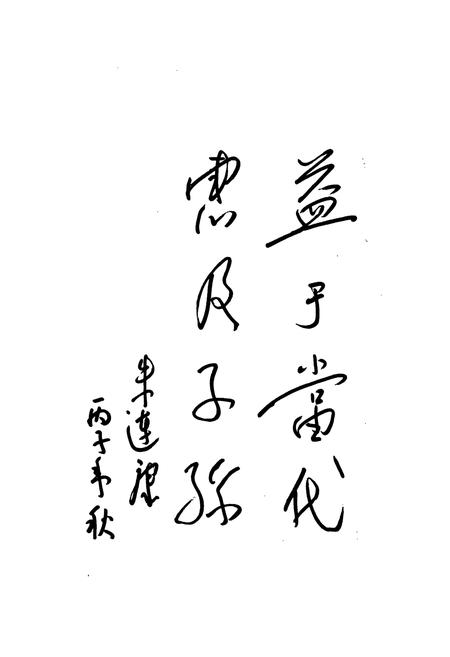 益于當代
惠及子孫
朱連康
丙子年秋